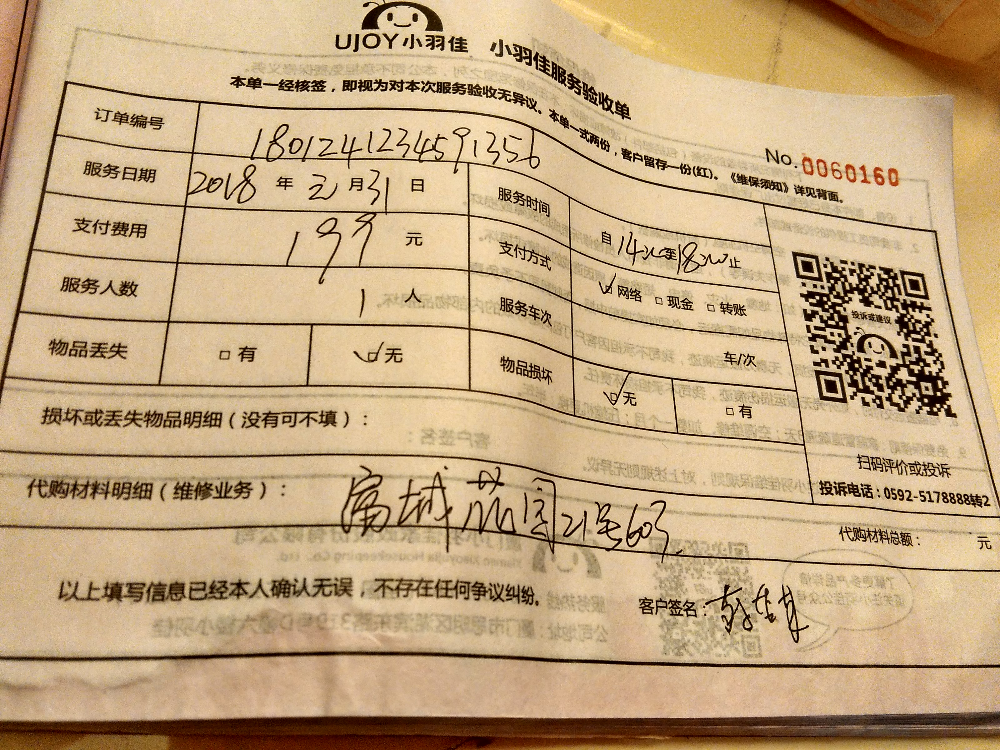 UJOY小羽佳 小羽佳服务验收单
本单一经核签，即视为对本次服务验收无异议。本单一式两份，客户留存一份(红)。《维保须知》详见背面。
No.0060160
订单编号 1801241234591356
服务日期 2018 年 元 月 31 日 服务时间 自 14:00 至 18:00 止
支付费用 199 元 支付方式 ☑网络 □现金 □转账
服务人数 1 人 服务车次 车/次
物品丢失 □有 ☑无 物品损坏 ☑无 □有
投诉或建议
损坏或丢失物品明细（没有可不填）：
扫码评价或投诉
投诉电话：0592-5178888转2
代购材料明细（维修业务）： 21号603
代购材料总额： 元
以上填写信息已经本人确认无误，不存在任何争议纠纷。
客户签名：